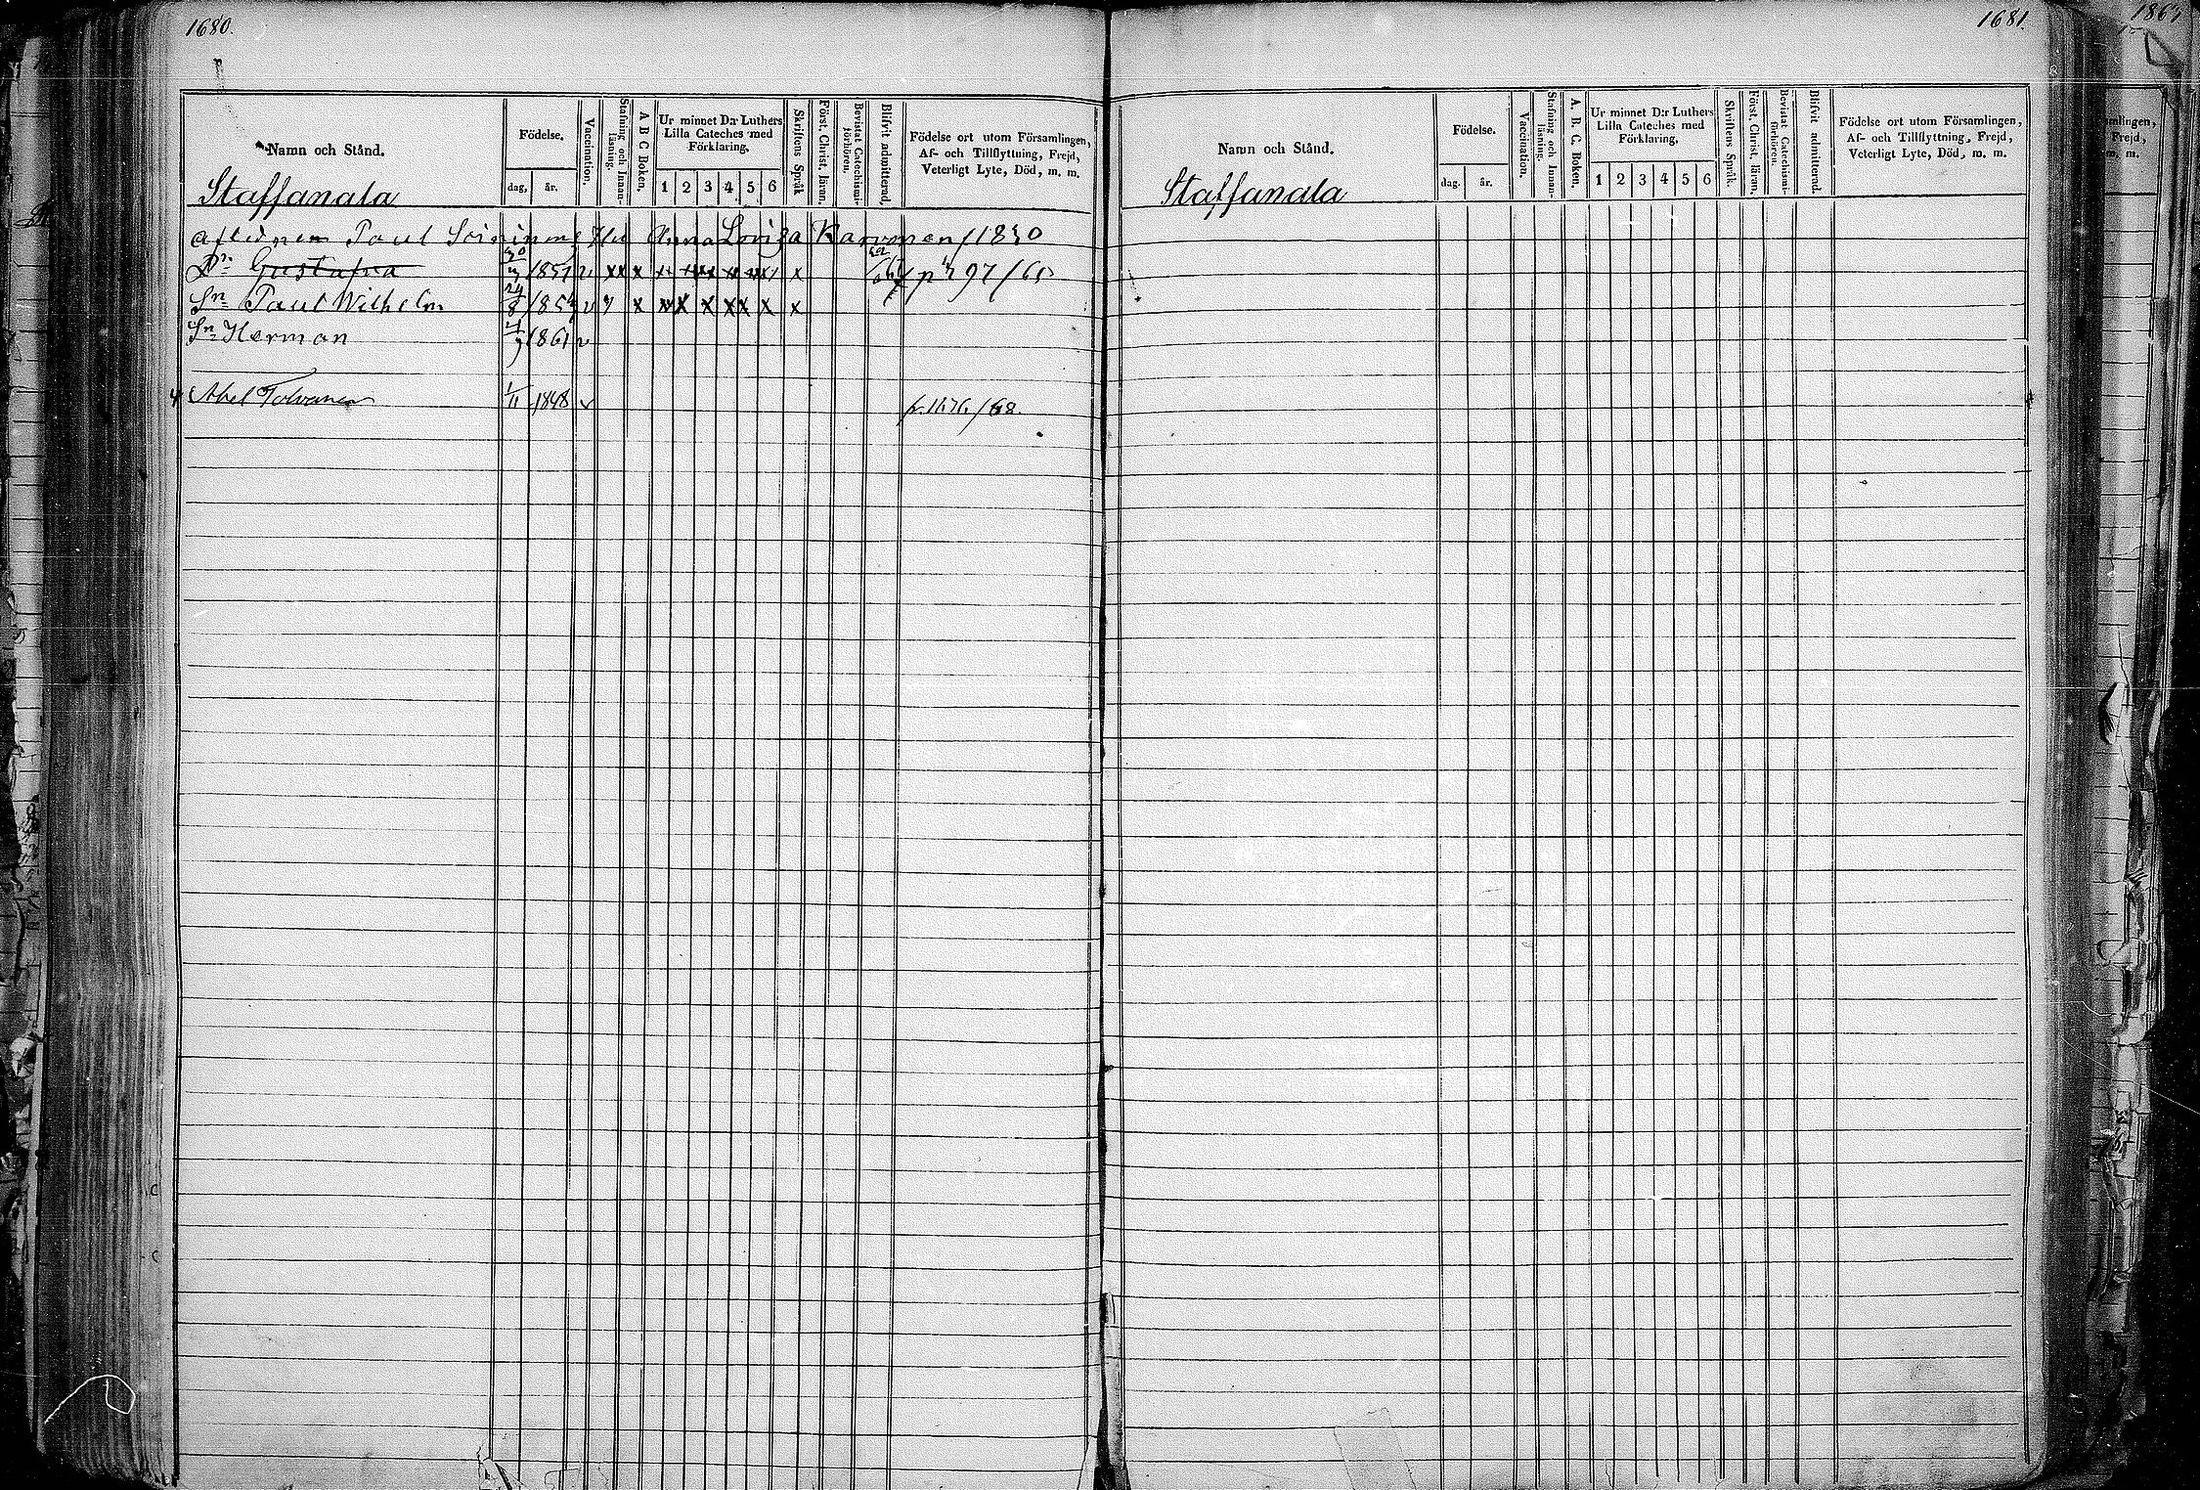 1680.
Namn och Stånd.
Födelse.
dag, år.
Vaccination.
Stafning och Innanläsning.
A B C Boken.
Ur minnet D:r Luthers Lilla Cateches med Förklaring.
1 2 3 4 5 6
Skriftens Språk
Först. Christ. läran.
Bevistat Catechismiförhören.
Blifvit admitterad.
Födelse ort utom Församlingen,
Af- och Tillflyttning, Frejd,
Veterligt Lyte, Död, m. m.
Staffanala
Aflidnem Paul Hu Anna Loviza Karvonen 1830
Dr. Gustafva 30/3 1851 v xx x x x x x x x x
Sn Paul Wilhelm 24/8 185 v x x x x x x x x
Sn Herman 1861 v
Abel Tolvanen 1/11 1848 v p. 1676/68.
1681.
Namn och Stånd.
Födelse.
dag. år.
Vaccination.
Stafning och Innanläsning.
A. B. C. Boken.
Ur minnet D:r Luthers Lilla Cateches med Förklaring.
1 2 3 4 5 6
Skriftens Språk.
Först. Christ. läran.
Bevistat Catechismiförhören.
Blifvit admitterad.
Födelse ort utom Församlingen,
Af- och Tillflyttning, Frejd,
Veterligt Lyte, Död, m. m.
Staffanala
mlingen,
Frejd,
m. m.